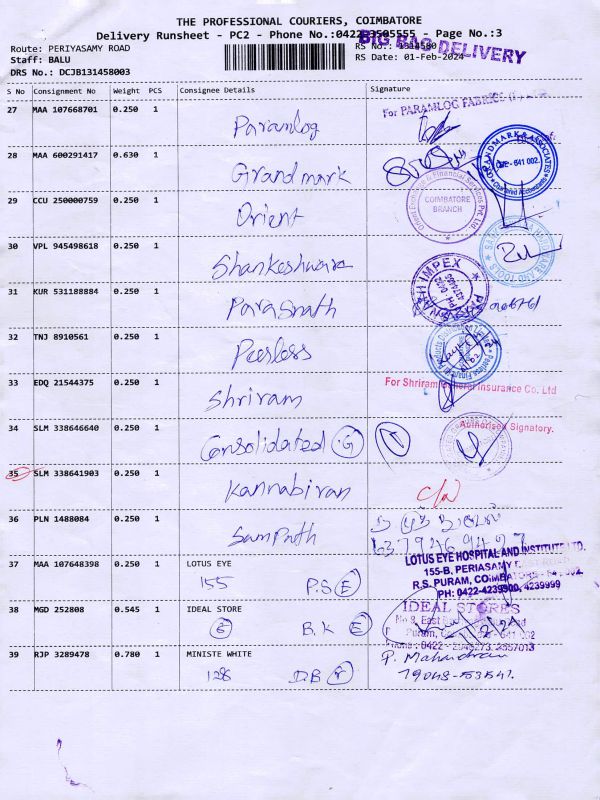 THE PROFESSIONAL COURIERS, COIMBATORE
Delivery Runsheet - PC2 - Phone No.:0422-3505555 - Page No.:3
BIG BAG DELIVERY
Route: PERIYASAMY ROAD
RS No.: 1314580
Staff: BALU
RS Date: 01-Feb-2024
DRS No.: DCJB131458003
S No Consignment No Weight PCS Consignee Details Signature
27 MAA 107668701 0.250 1 Paramlog For PARAMLOG FABRICS
28 MAA 600291417 0.630 1 Grandmark GRANDMARK & ASSOCIATES 641 002. Chartered Accountants
29 CCU 250000759 0.250 1 Orient Orient Exchange & Financial Services Pvt. Ltd COIMBATORE BRANCH
30 VPL 945498618 0.250 1 Shankeshware
31 KUR 531188884 0.250 1 Parasnath PARASNATH IMPEX
32 TNJ 8910561 0.250 1 Peerless
33 EDQ 21544375 0.250 1 Shriram For Shriram General Insurance Co. Ltd
34 SLM 338646640 0.250 1 Consolidated G Authorised Signatory.
35 SLM 338641903 0.250 1 Kannabiran
36 PLN 1488084 0.250 1 Sampath
37 MAA 107648398 0.250 1 LOTUS EYE LOTUS EYE HOSPITAL AND INSTITUTE LTD.
155 P.S E 155-B, PERIASAMY
R.S. PURAM, COIMBATORE
PH: 0422-4239900, 4239999
38 MGD 252808 0.545 1 IDEAL STORE IDEAL STORES
B.K E
39 RJP 3289478 0.780 1 MINISTE WHITE P. Mahendran
128 D.B